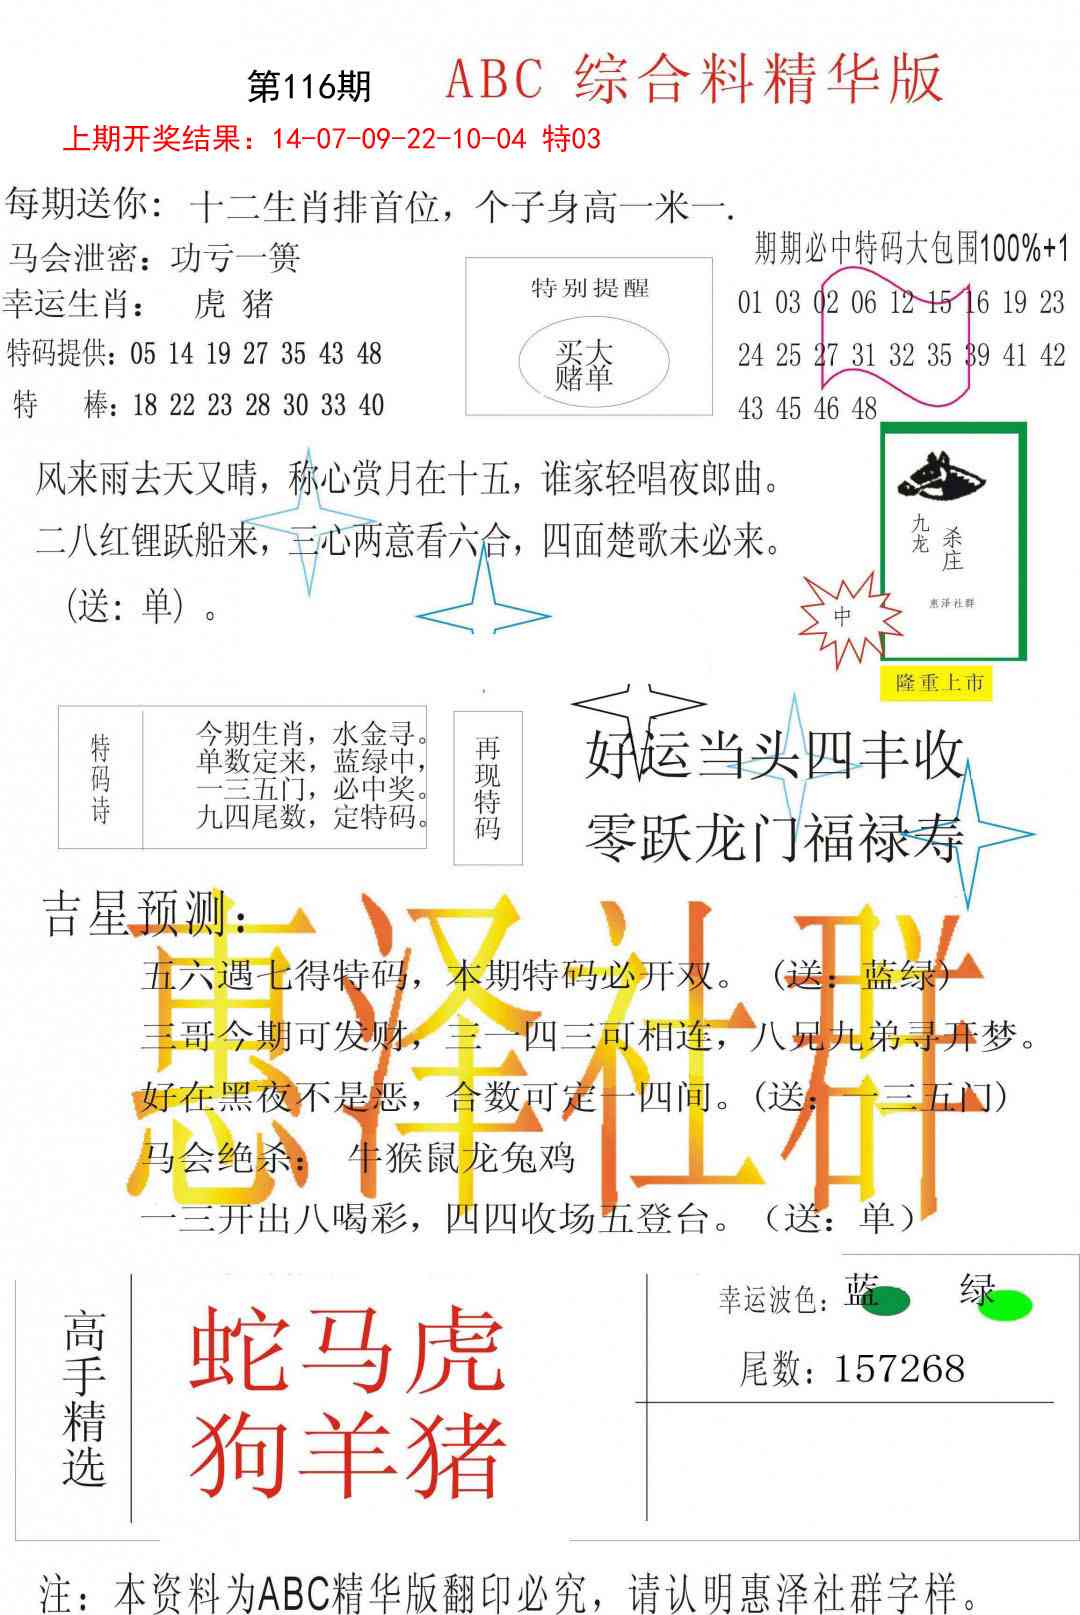 第116期 ABC 综合料精华版
上期开奖结果：14-07-09-22-10-04 特03
每期送你：十二生肖排首位，个子身高一米一.
马会泄密：功亏一篑
幸运生肖： 虎 猪
特码提供：05 14 19 27 35 43 48
特 棒：18 22 23 28 30 33 40
特别提醒
买大
赌单
期期必中特码大包围100%+1
01 03 02 06 12 15 16 19 23
24 25 27 31 32 35 39 41 42
43 45 46 48
风来雨去天又晴，称心赏月在十五，谁家轻唱夜郎曲。
二八红锂跃船来，三心两意看六合，四面楚歌未必来。
(送：单)。
九龙
杀庄
惠泽社群
中
隆重上市
特码诗
今期生肖，水金寻。
单数定来，蓝绿中，
一三五门，必中奖。
九四尾数，定特码。
再现特码
好运当头四丰收
零跃龙门福禄寿
吉星预测：
五六遇七得特码，本期特码必开双。(送：蓝绿)
三哥今期可发财，三一四三可相连，八兄九弟寻开梦。
好在黑夜不是恶，合数可定一四间。(送：一三五门)
马会绝杀： 牛猴鼠龙兔鸡
一三开出八喝彩，四四收场五登台。（送：单）
惠泽社群
高手精选
蛇马虎
狗羊猪
幸运波色：蓝 绿
尾数：157268
注：本资料为ABC精华版翻印必究，请认明惠泽社群字样。